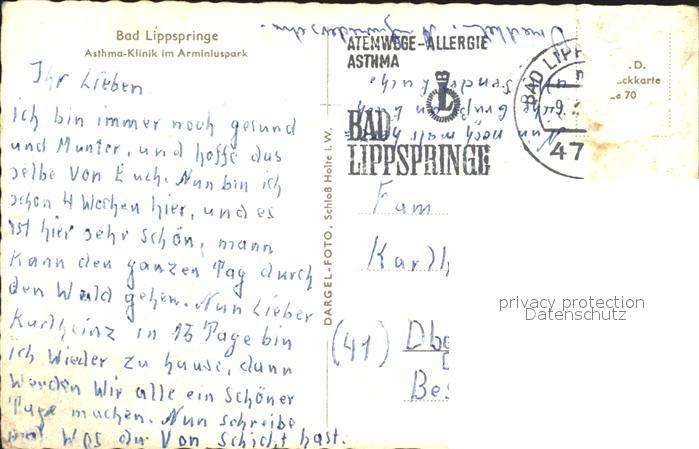 Bad Lippspringe
Asthma-Klinik im Arminiuspark
Ihr Lieben
ich bin immer noch gesund
und Munter, und hoffe das
selbe von Euch. Nun bin ich
schon 4 Wochen hier, und es
ist hier sehr schön, mann
Kann den ganzen Tag durch
den Wald gehen. Nun Lieber
Karlheinz in 15 Tage bin
ich Wieder zu hause, dann
Werden Wir alle ein schöner
Tage machen. Nun schreibe
Was du Von Schicht hast.
DARGEL-FOTO, Schloß Holte i. W.
ATEMWEGE-ALLERGIE
ASTHMA
BAD
LIPPSPRINGE
BAD LIPP
47
.D.
ckkarte
e 70
Nun noch mals
Fam
Karlh
(41) Dbg
Be
privacy protection
Datenschutz